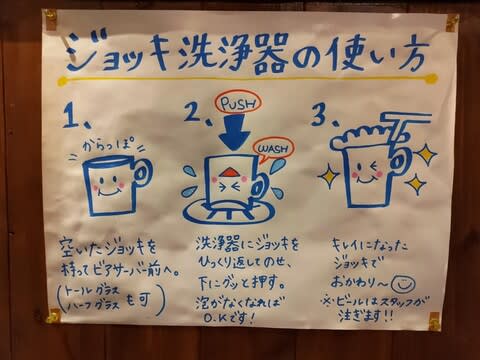 ジョッキ洗浄器の使い方
1、
からっぽ
空いたジョッキを
持ってビアサーバ前へ。
(トールグラス
ハーフグラス も可)
2、
PUSH
WASH
洗浄器にジョッキを
ひっくり返してのせ、
下にグッと押す。
泡がなくなれば
O.Kです!
3、
キレイになった
ジョッキで
おかわり〜
※ビールはスタッフが
注ぎます!!